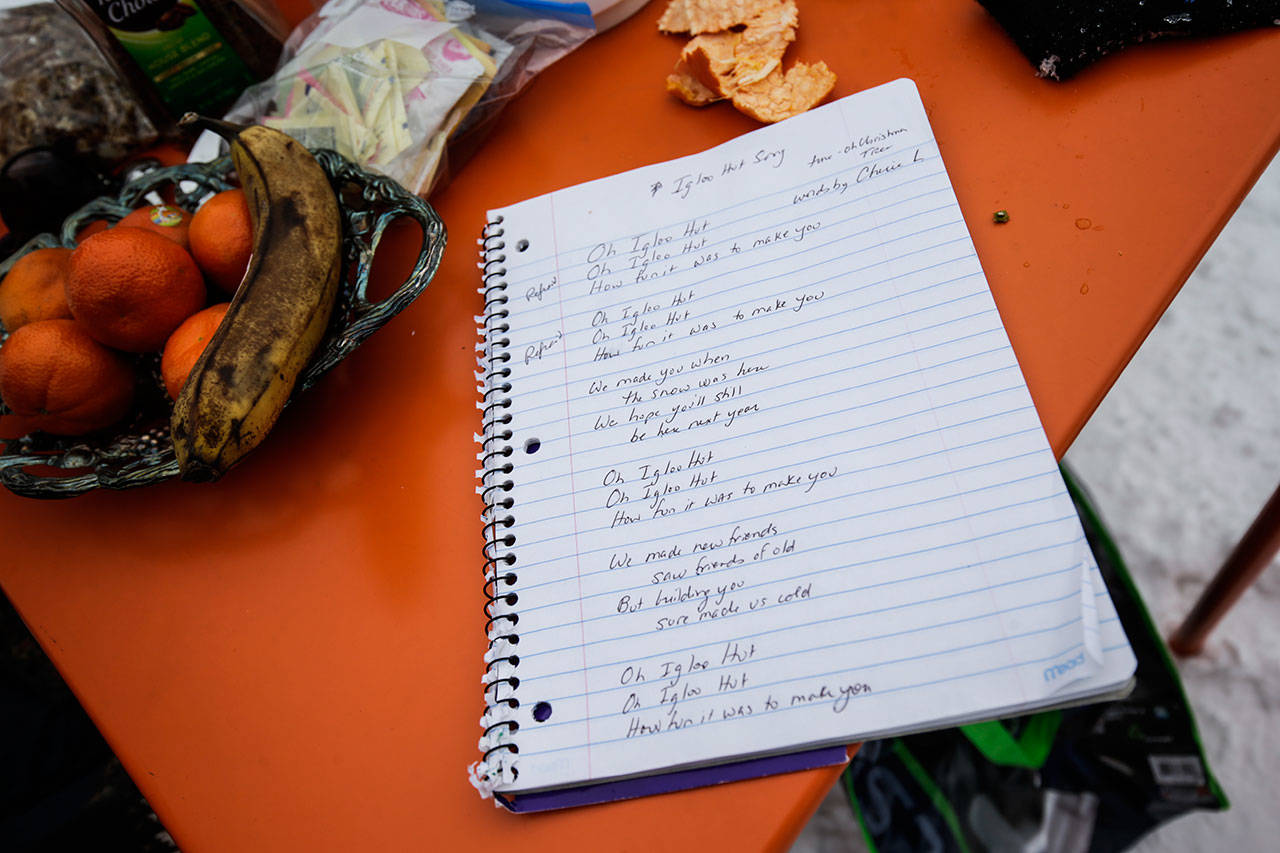 Choice
HOUSE BLEND
* Igloo Hut Song
tune - oh Christmas
Tree
words by Cherie L
Oh Igloo Hut
Oh Igloo Hut
How fun it was to make you
Refrain
Oh Igloo Hut
Oh Igloo Hut
How fun it was to make you
Refrain
We made you when
the snow was here
We hope you'll still
be here next year
Oh Igloo Hut
Oh Igloo Hut
How fun it was to make you
We made new friends
saw friends of old
But building you
sure made us cold
Oh Igloo Hut
Oh Igloo Hut
How fun it was to make you
Mead